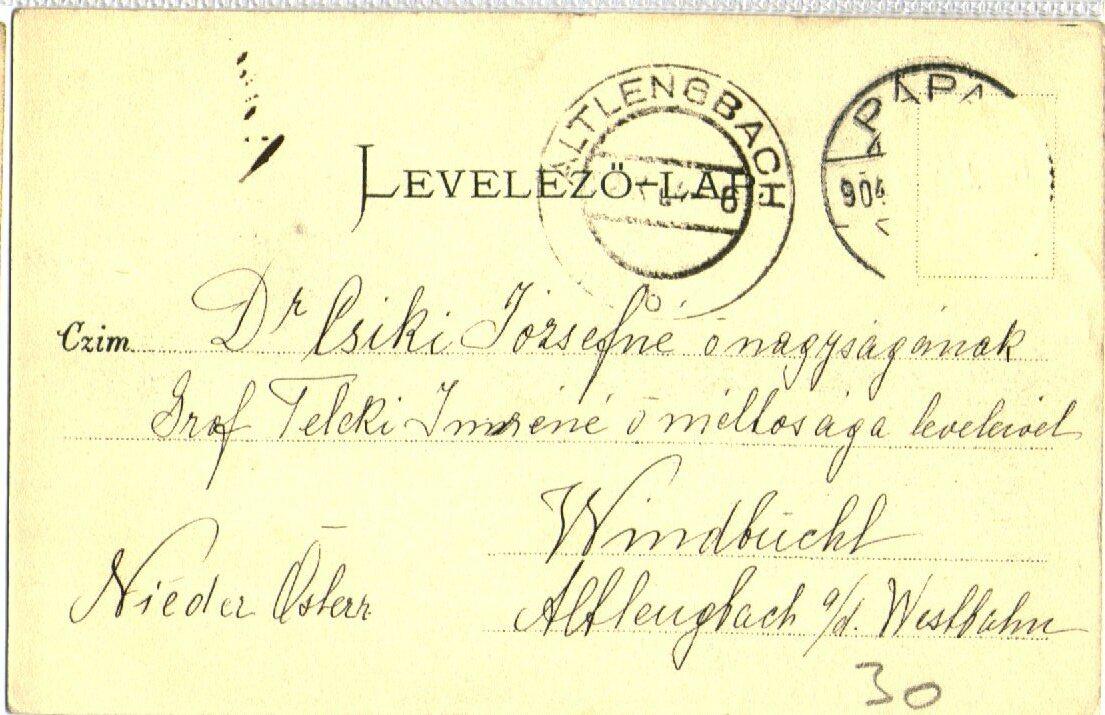 LEVELEZŐ-LAP
ALTLENGBACH
PÁPA
904
6
Czim Dr Csiki Józsefné ő nagyságának
Gróf Teleki Imréné ő méltósága leveleivel
Windbüchl
Nieder Österr
Altlengbach a/d. Westbahn
30